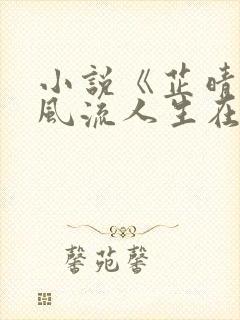 小説《芷晴
風流人生在
馨苑馨